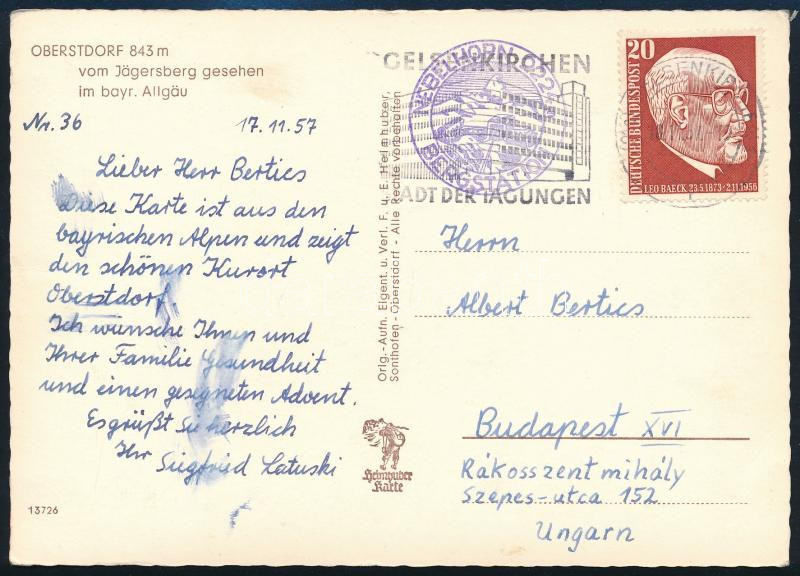 OBERSTDORF 843 m
vom Jägersberg gesehen
im bayr. Allgäu
Nr. 36 17.11.57
Lieber Herr Bertics
Diese Karte ist aus den
bayrischen Alpen und zeigt
den schönen Kurort
Oberstdorf.
Ich wünsche Ihnen und
Ihrer Familie Gesundheit
und einen gesegneten Advent.
Es grüßt Sie herzlich
Ihr Siegfried Latuski
13726
Orig.-Aufn. Eigent. u. Verl. F. u. E. Heimhuber,
Sonthofen-Oberstdorf - Alle Rechte vorbehalten
Heimhuber
Karte
GELSENKIRCHEN
STADT DER TAGUNGEN
NEBELHORN
BERGSTATION
20
DEUTSCHE BUNDESPOST
LEO BAECK 23.5.1873-2.11.1956
Herrn
Albert Bertics
Budapest XVI
Rákosszentmihály
Szepes-utca 152
Ungarn